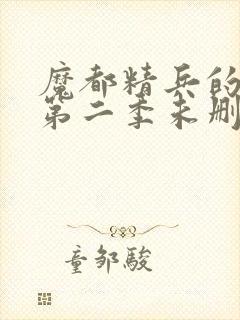 魔都精兵的
第二季未删
童邹駿